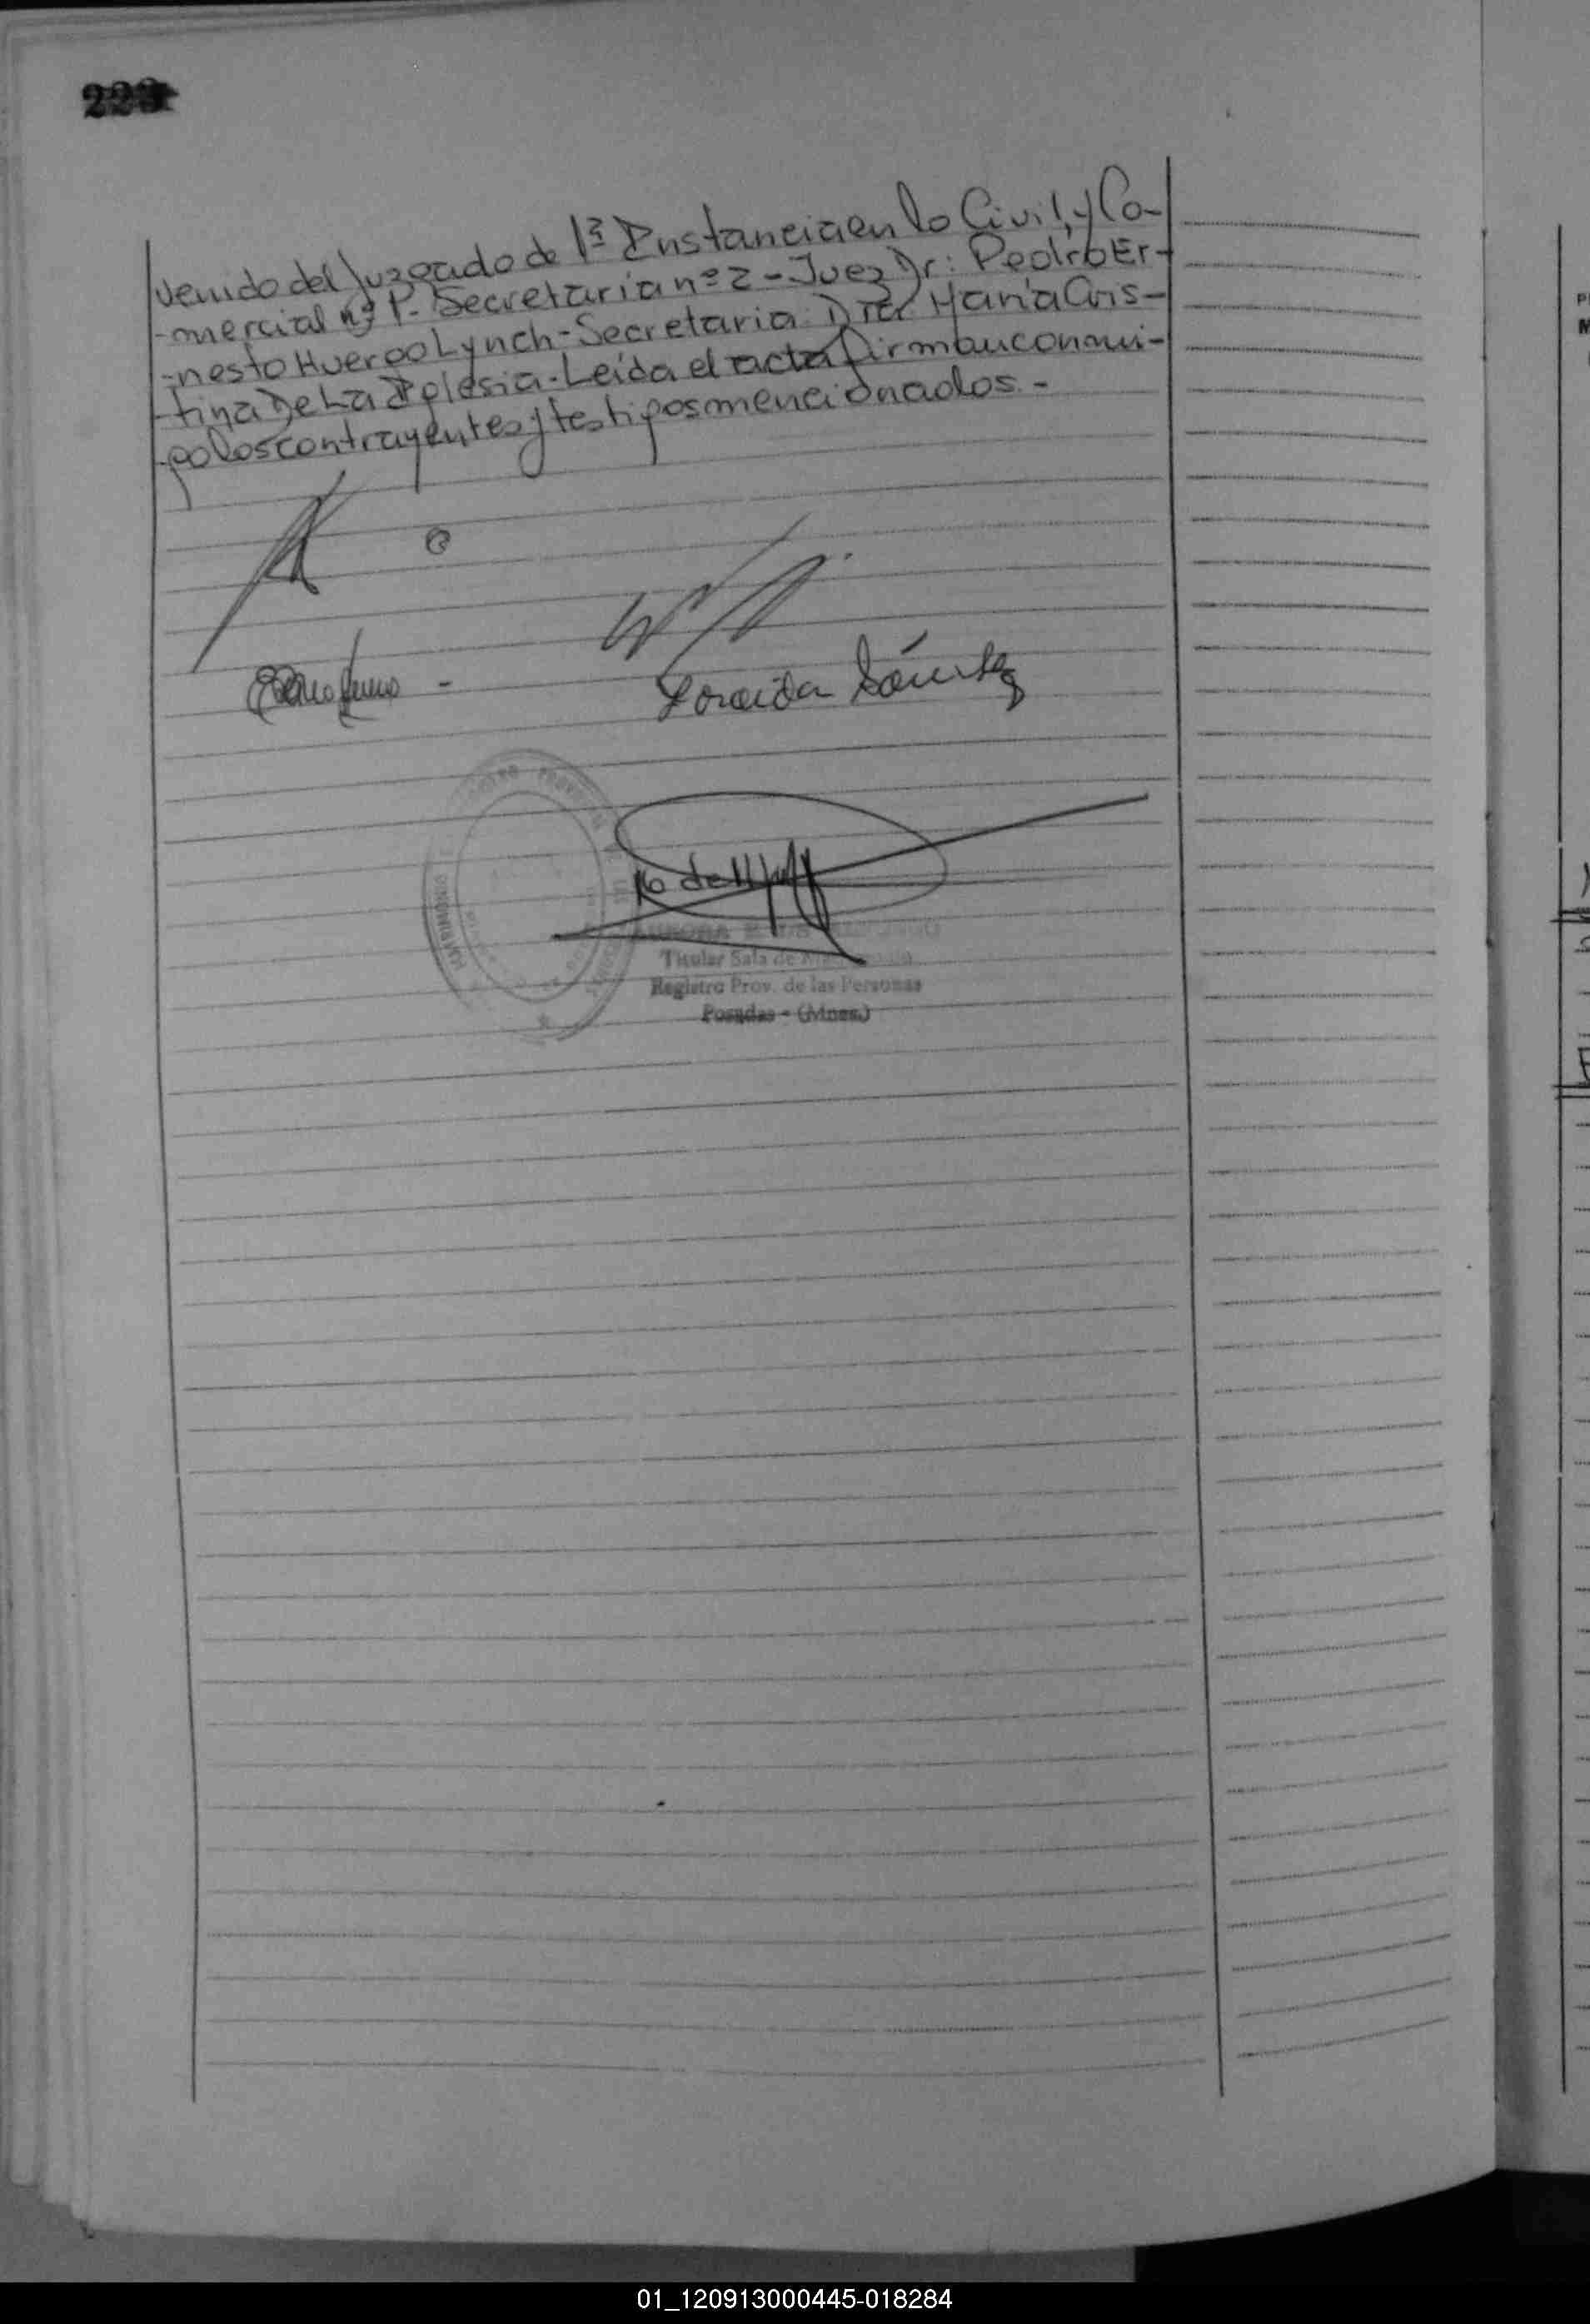 venido del Juzgado de 1ª Instancia en lo Civil, y Co-
-mercial nº 1. Secretaria nº 2 - Juez Dr: Pedro Er-
-nesto Huergo Lynch - Secretaria: Dra María Cris-
-tina De La Iglesia. Leída el acta firman conmi-
-go los contrayentes y testigos mencionados. -
Sánchez
MATRIMONIO
Titular Sala de
Registro Prov. de las Personas
Posadas - (Mnes.)
01_120913000445-018284